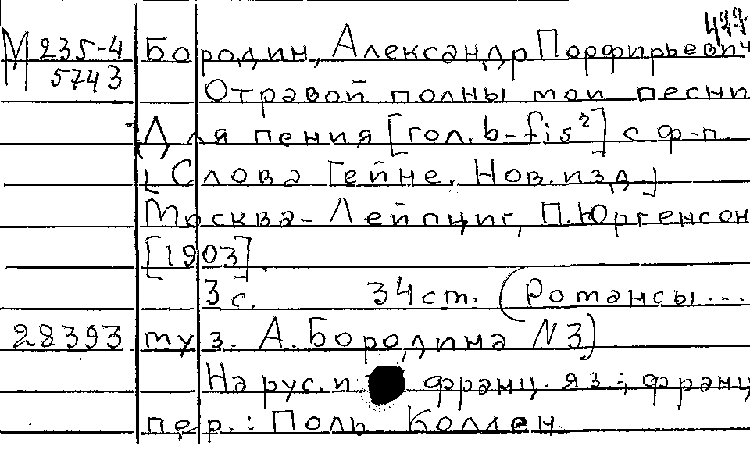 427
М 235-4 Бородин, Александр Порфирьевич
5743 Отравой полны мои песни
Для пения [гол. b-fis²] с ф-п.
[Слова Гейне. Нов. изд.]
Москва-Лейпциг, П. Юргенсон
[1903]
3 с. 34 ст. (Романсы...
28393 муз. А. Бородина N 3)
На рус. и франц. яз.; франц
пер.: Поль Коллен